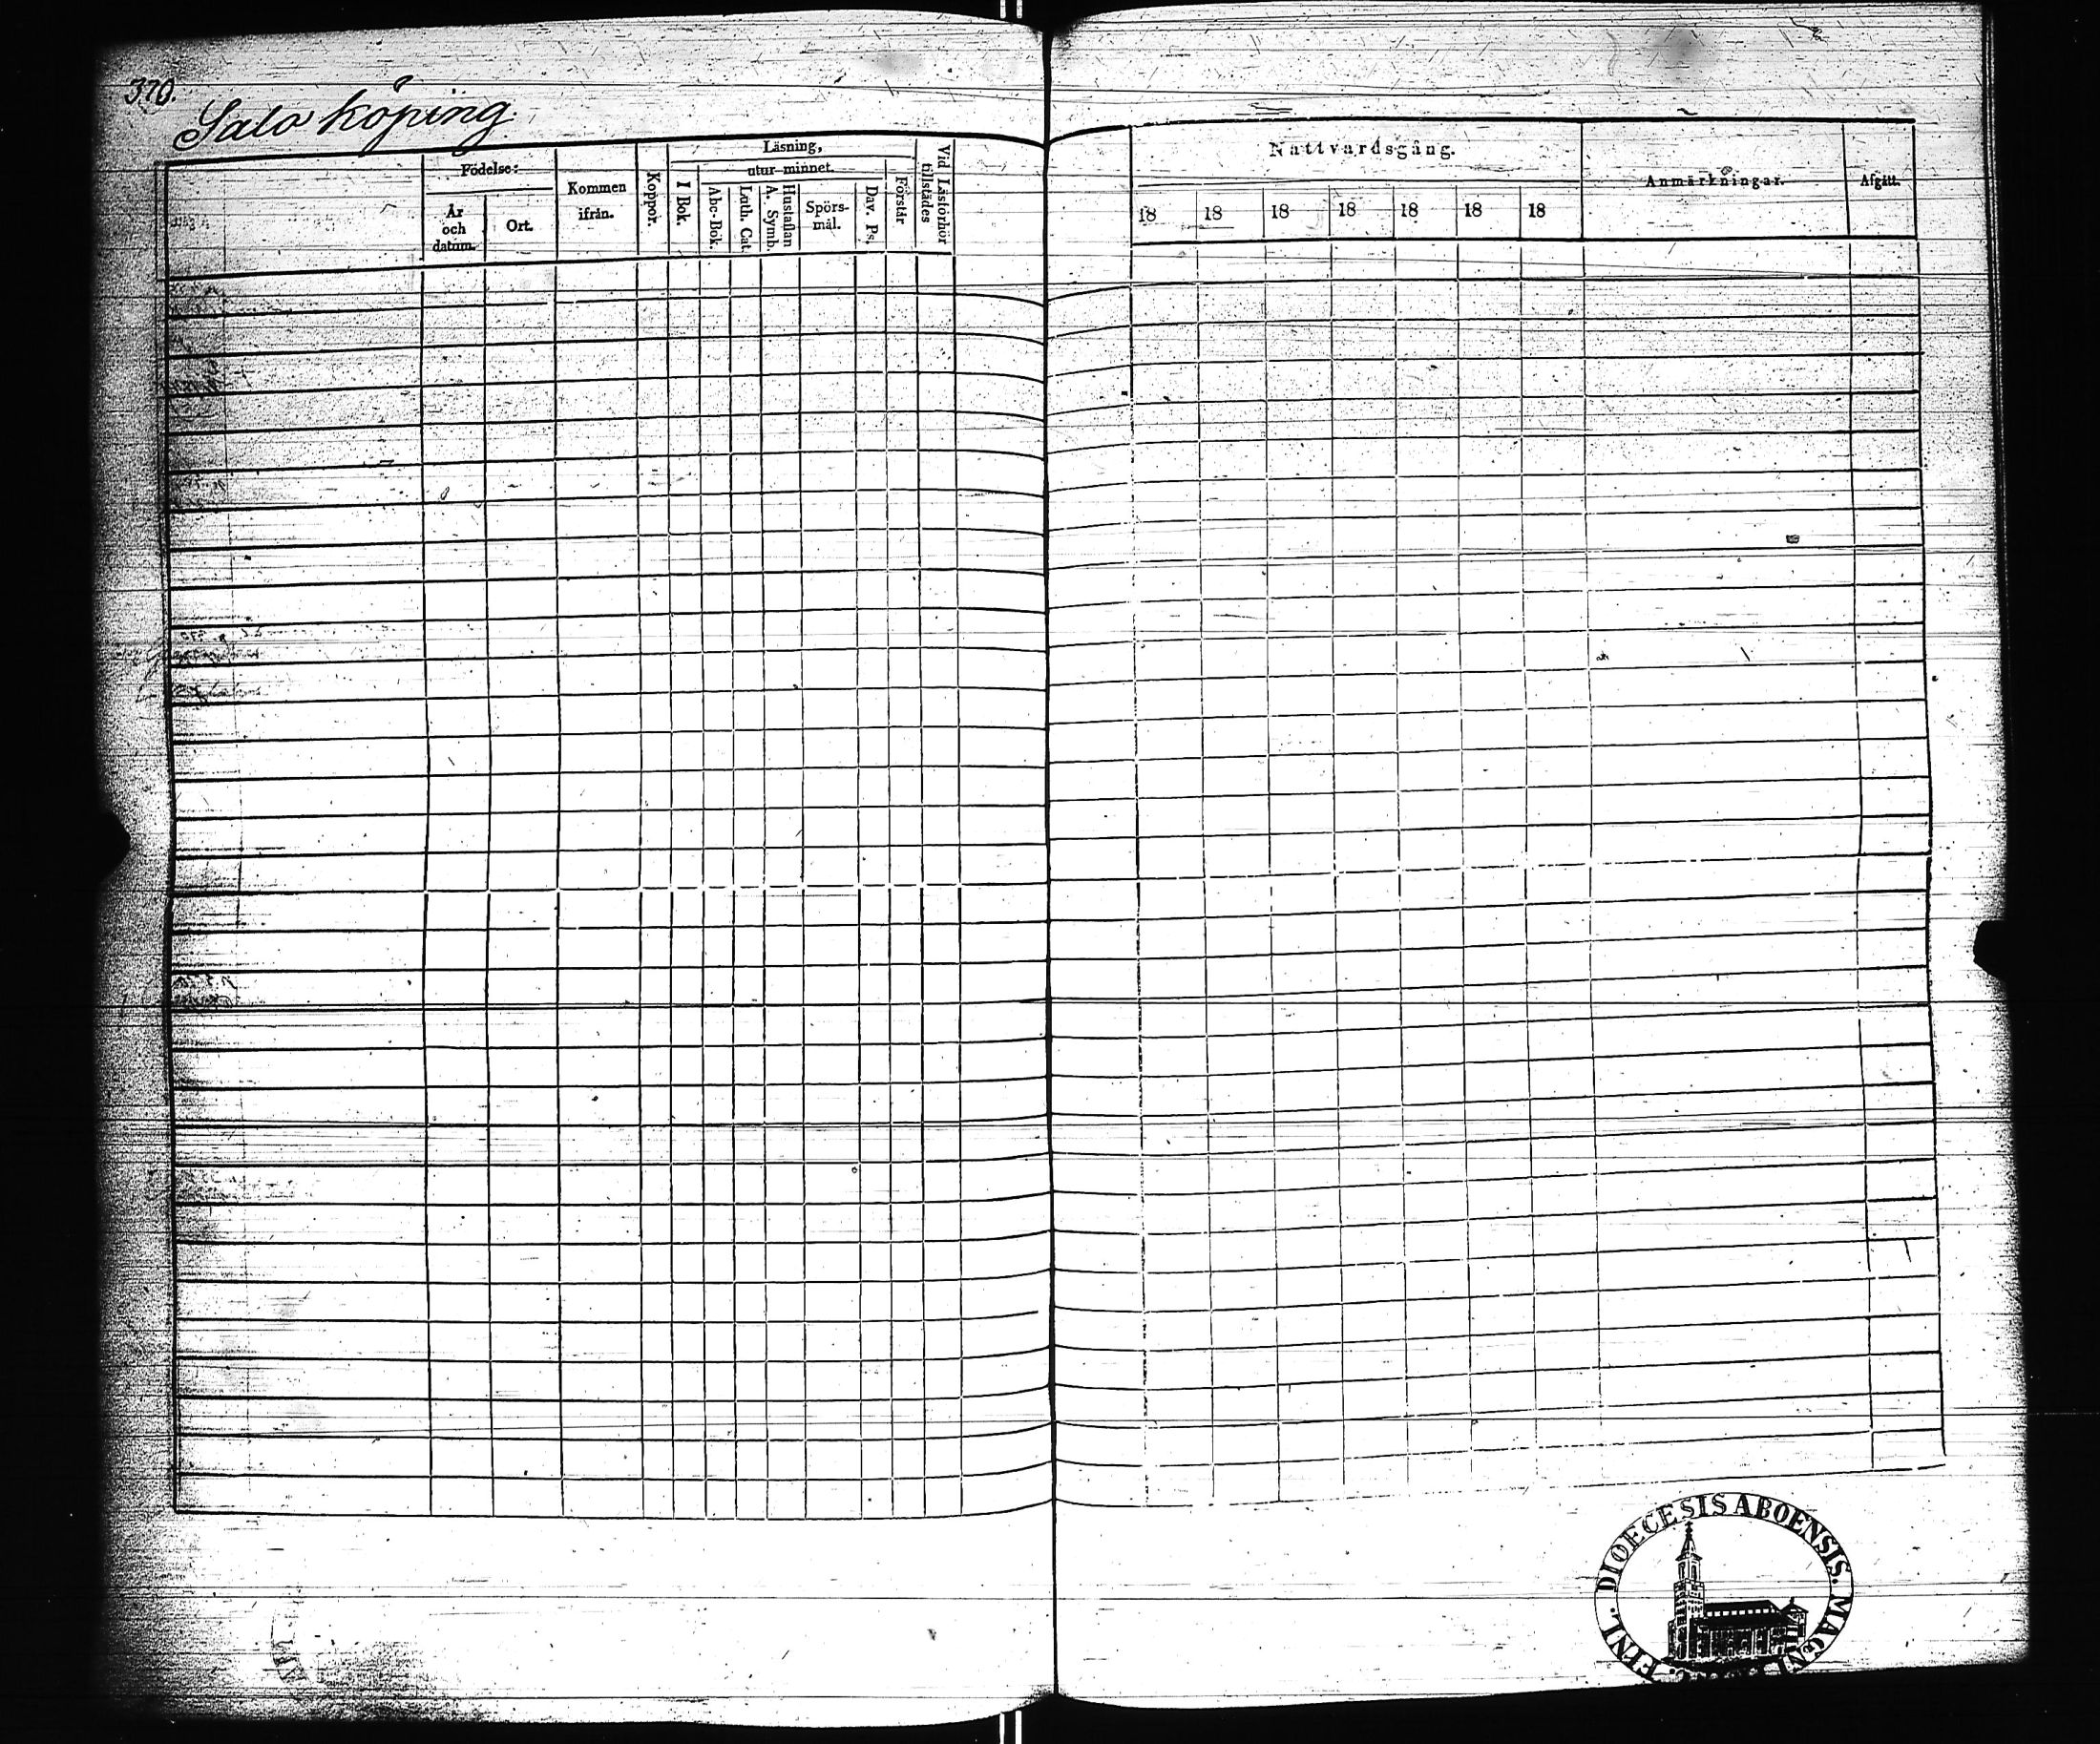 370.
Salo köping
Födelse:
År och datum.
Ort.
Kommen ifrån.
Koppor.
Läsning,
I Bok.
utur minnet.
Abc-Bok.
Luth. Cat.
Hustaflan A. Symb.
Spörs-mål.
Dav. Ps.
Förstår
Vid Läsförhör tillstädes
Nattvardsgång.
18 18 18 18 18 18 18
Anmärkningar.
Afgått.
DIOECESIS ABOENSIS. MAGNI
FINL.